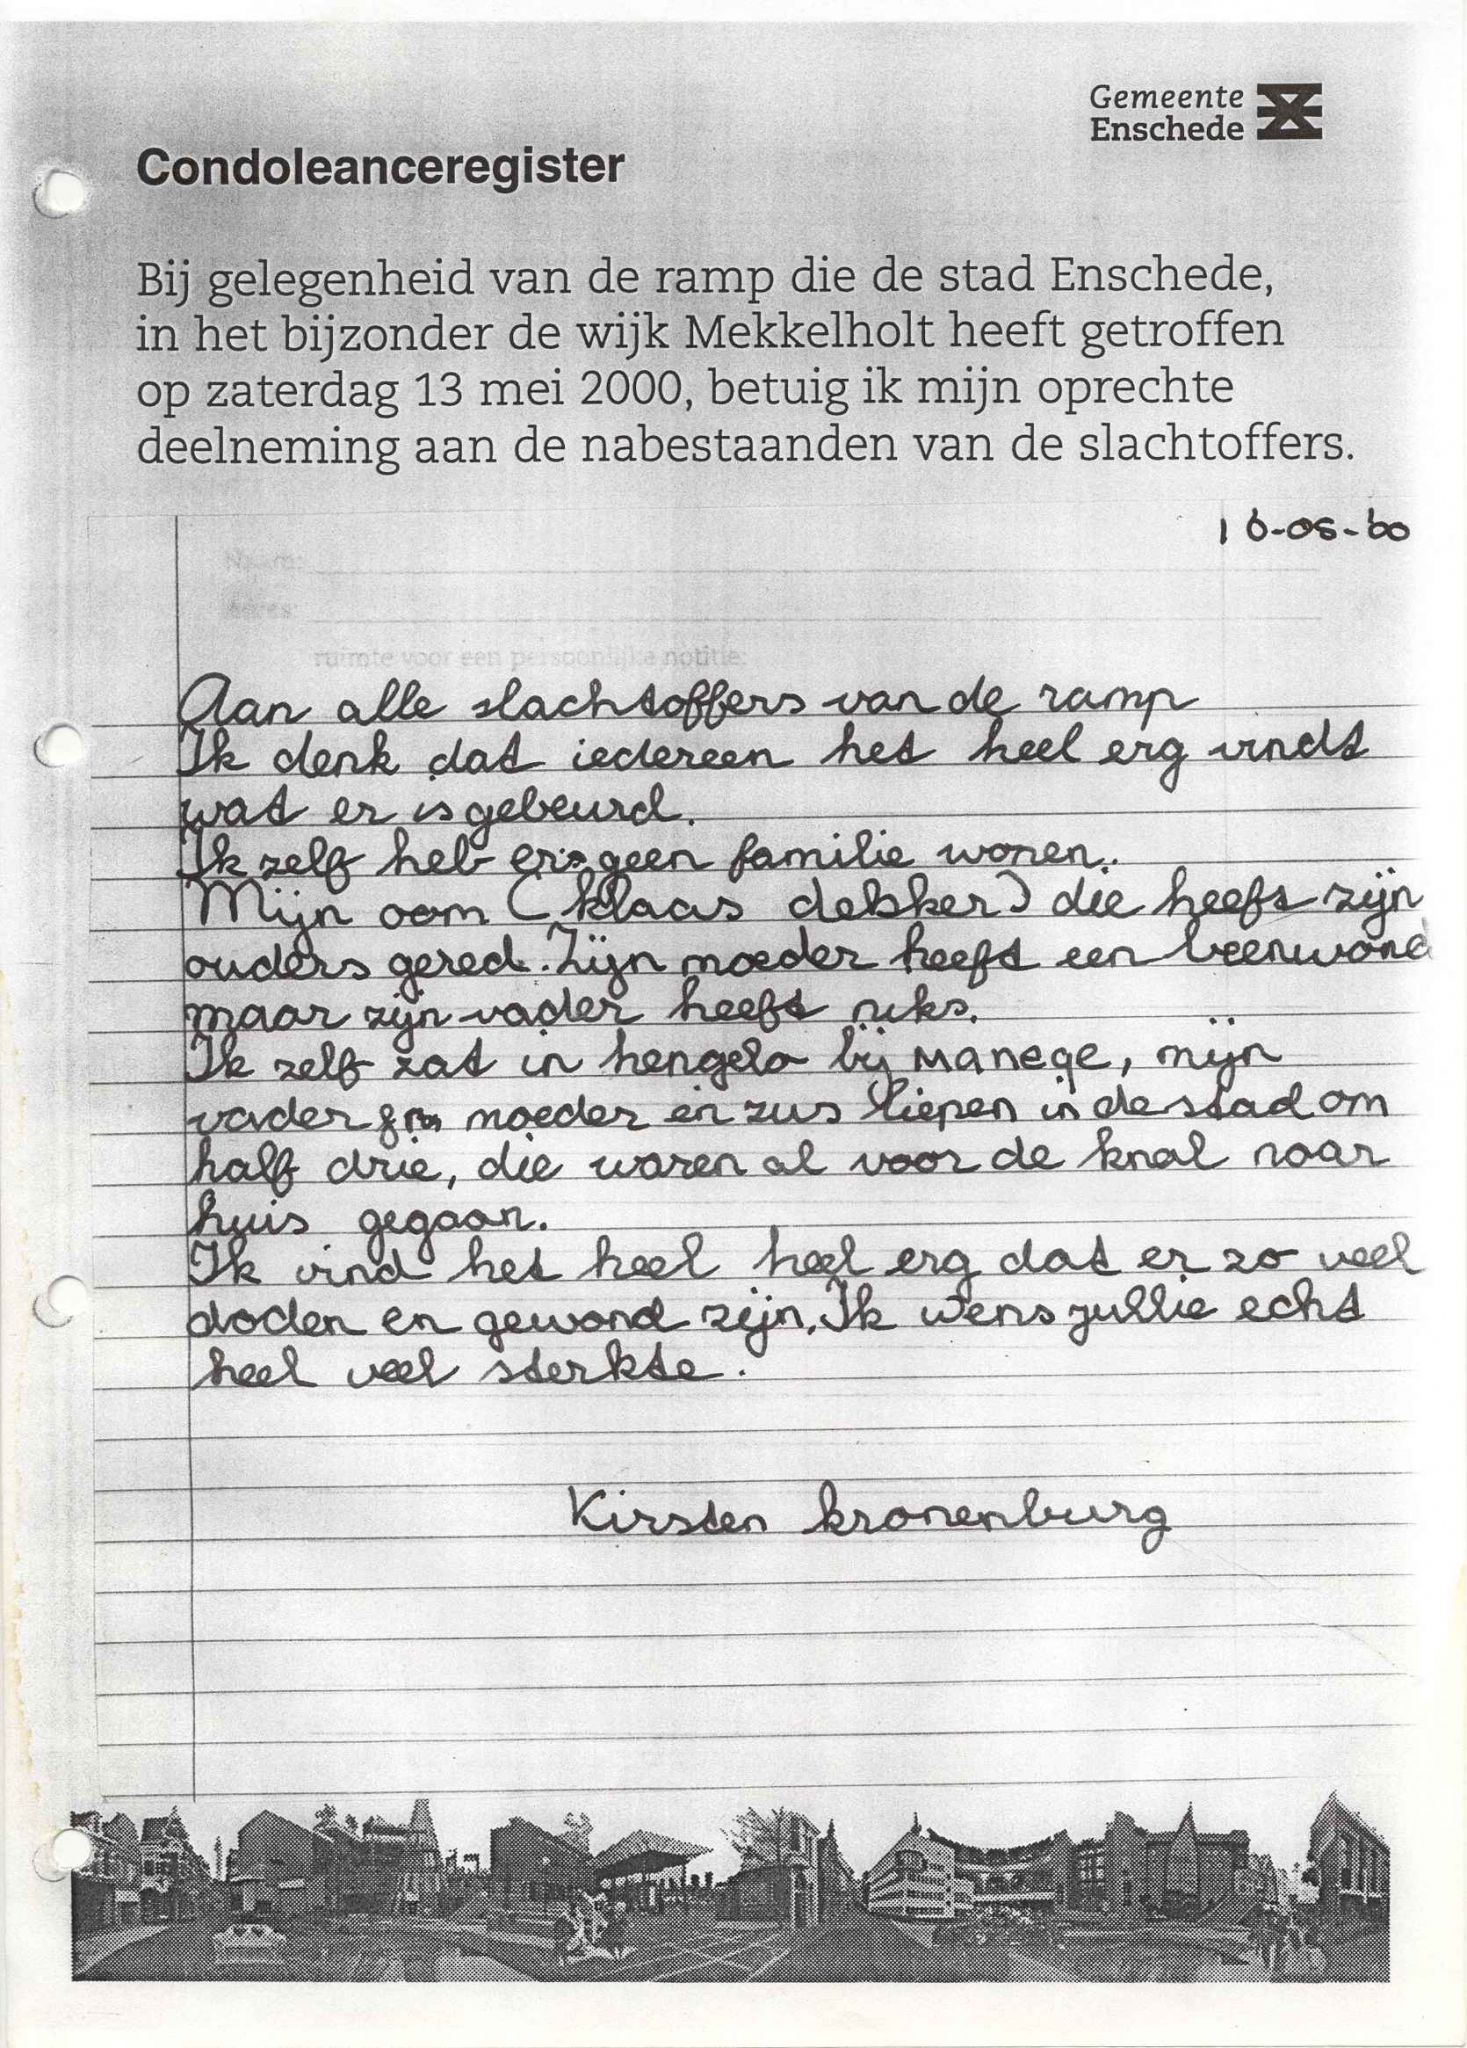 Gemeente
Enschede
Condoleanceregister
Bij gelegenheid van de ramp die de stad Enschede,
in het bijzonder de wijk Mekkelholt heeft getroffen
op zaterdag 13 mei 2000, betuig ik mijn oprechte
deelneming aan de nabestaanden van de slachtoffers.
16-05-00
Naam:
Adres:
ruimte voor een persoonlijke notitie:
Aan alle slachtoffers van de ramp
Ik denk dat iedereen het heel erg vindt
wat er is gebeurd.
Ik zelf heb er geen familie wonen.
Mijn oom (klaas dekker) die heeft zijn
ouders gered. Zijn moeder heeft een beenwond
maar zijn vader heeft niks.
Ik zelf zat in hengelo bij Manege, mijn
vader moeder en zus liepen in de stad om
half drie, die waren al voor de knal naar
huis gegaan.
Ik vind het heel heel erg dat er zo veel
doden en gewond zijn. Ik wens jullie echt
heel veel sterkte.
Kirsten kronenburg